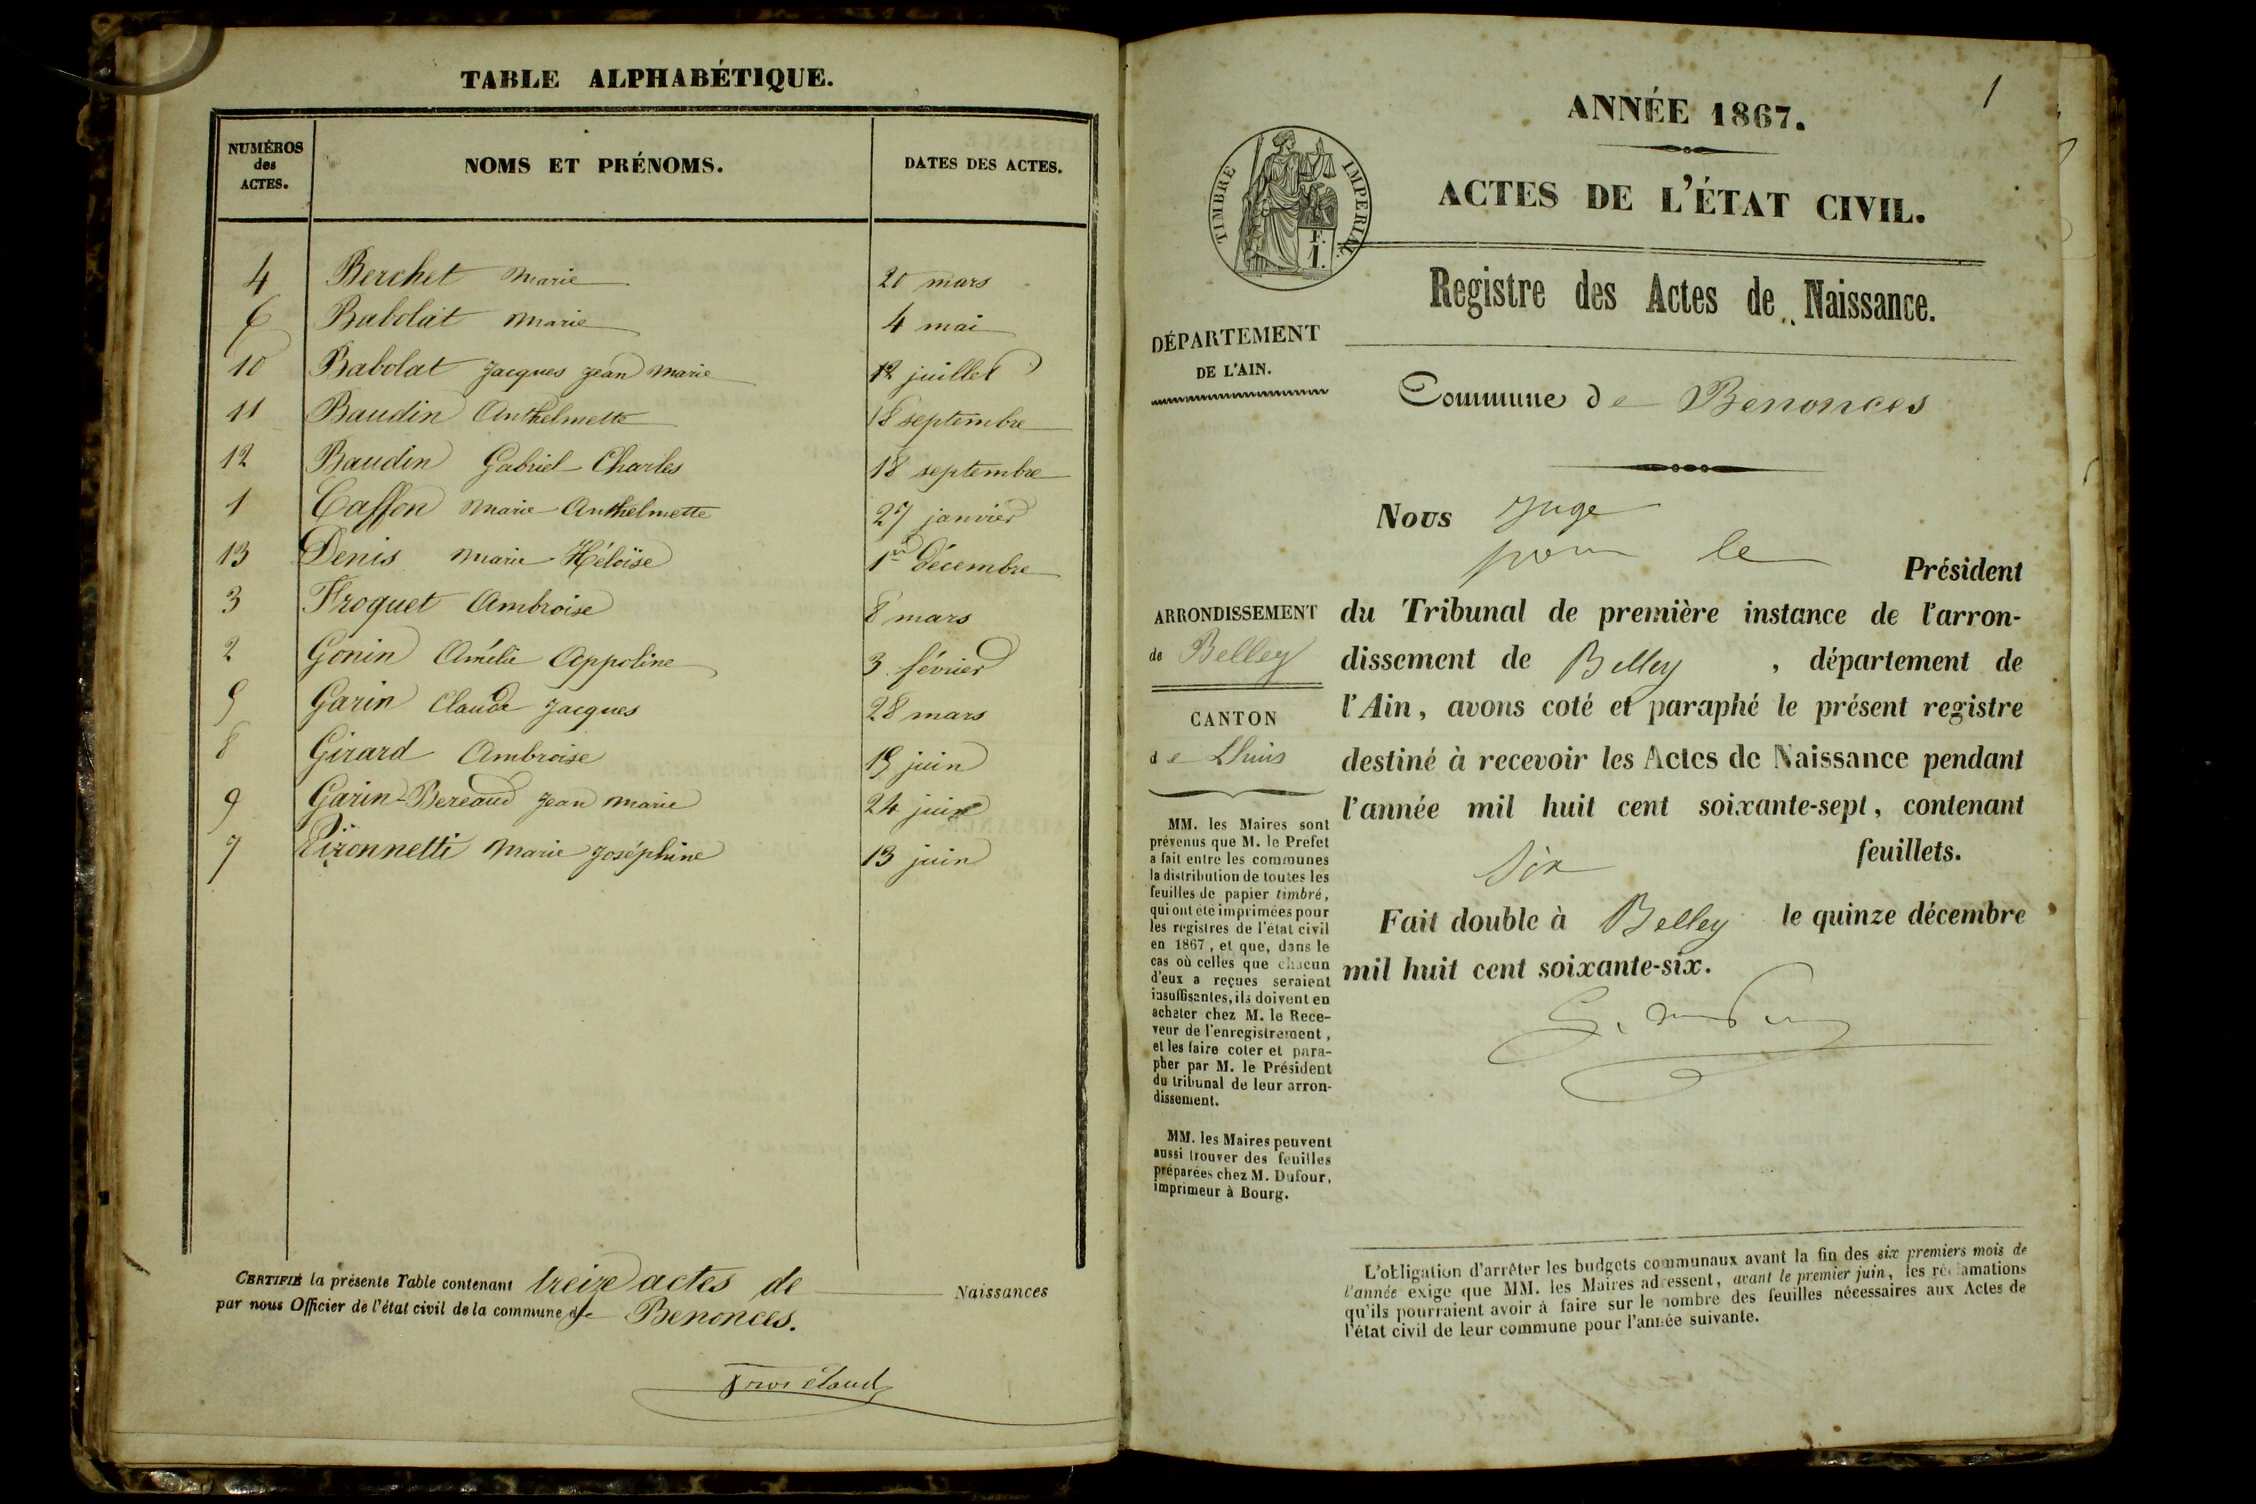 TABLE ALPHABÉTIQUE.
NUMÉROS des ACTES. NOMS ET PRÉNOMS. DATES DES ACTES.
4 Berchet Marie 20 mars
6 Babolat Marie 4 mai
10 Babolat Jacques Jean Marie 12 juillet
11 Baudin Anthelmette 18 septembre
12 Baudin Gabriel Charles 18 septembre
1 Caffon Marie Anthelmette 27 janvier
13 Denis Marie Héloïse 1er Décembre
3 Froquet Ambroise 8 mars
2 Gonin Amélie Appoline 3 février
5 Garin Claude Jacques 28 mars
8 Girard Ambroise 19 juin
9 Garin-Bereaud Jean Marie 24 juin
7 Marie Joséphine 13 juin
CERTIFIÉ la présente Table contenant treize actes de Naissances
par nous Officier de l'état civil de la commune de Benonces.
1
ANNÉE 1867.
TIMBRE IMPERIAL
F.
1.
ACTES DE L'ÉTAT CIVIL.
Registre des Actes de Naissance.
DÉPARTEMENT
DE L'AIN.
Commune de Benonces
Nous Juge
pour le
Président
ARRONDISSEMENT
de Belley
CANTON
de Lhuis
du Tribunal de première instance de l'arron-
dissement de Belley , département de
l'Ain, avons coté et paraphé le présent registre
destiné à recevoir les Actes de Naissance pendant
l'année mil huit cent soixante-sept, contenant
six feuillets.
Fait double à Belley le quinze décembre
mil huit cent soixante-six.
MM. les Maires sont
prévenus que M. le Prefet
a fait entre les communes
la distribution de toutes les
feuilles de papier timbré,
qui ont été imprimées pour
les registres de l'état civil
en 1867, et que, dans le
cas où celles que chacun
d'eux a reçues seraient
insuffisantes, ils doivent en
acheter chez M. le Rece-
veur de l'enregistrement,
et les faire coter et para-
pher par M. le Président
du tribunal de leur arron-
dissement.
MM. les Maires peuvent
aussi trouver des feuilles
préparées chez M. Dufour,
imprimeur à Bourg.
L'obligation d'arrêter les budgets communaux avant la fin des six premiers mois de
l'année exige que MM. les Maires adressent, avant le premier juin, les réclamations
qu'ils pourraient avoir à faire sur le nombre des feuilles nécessaires aux Actes de
l'état civil de leur commune pour l'année suivante.